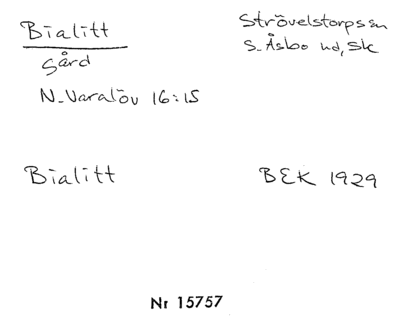 Bialitt
Strövelstorps sn
S. Åsbo hd, Sk
gård
N. Varalöv 16:15
Bialitt
BEK 1929
Nr 15757